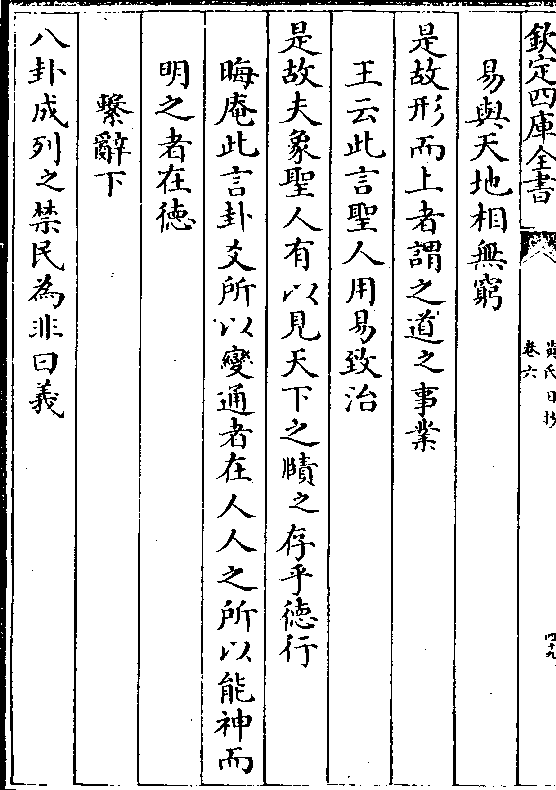 欽定四庫全書
黄氏日抄
卷六
四十九
易與天地相無窮
是故形而上者謂之道之事業
王云此言聖人用易致治
是故夫象聖人有以見天下之賾之存乎徳行
晦庵此言卦爻所以變通者在人人之所以能神而
明之者在徳
繫辭下
八卦成列之禁民為非曰義